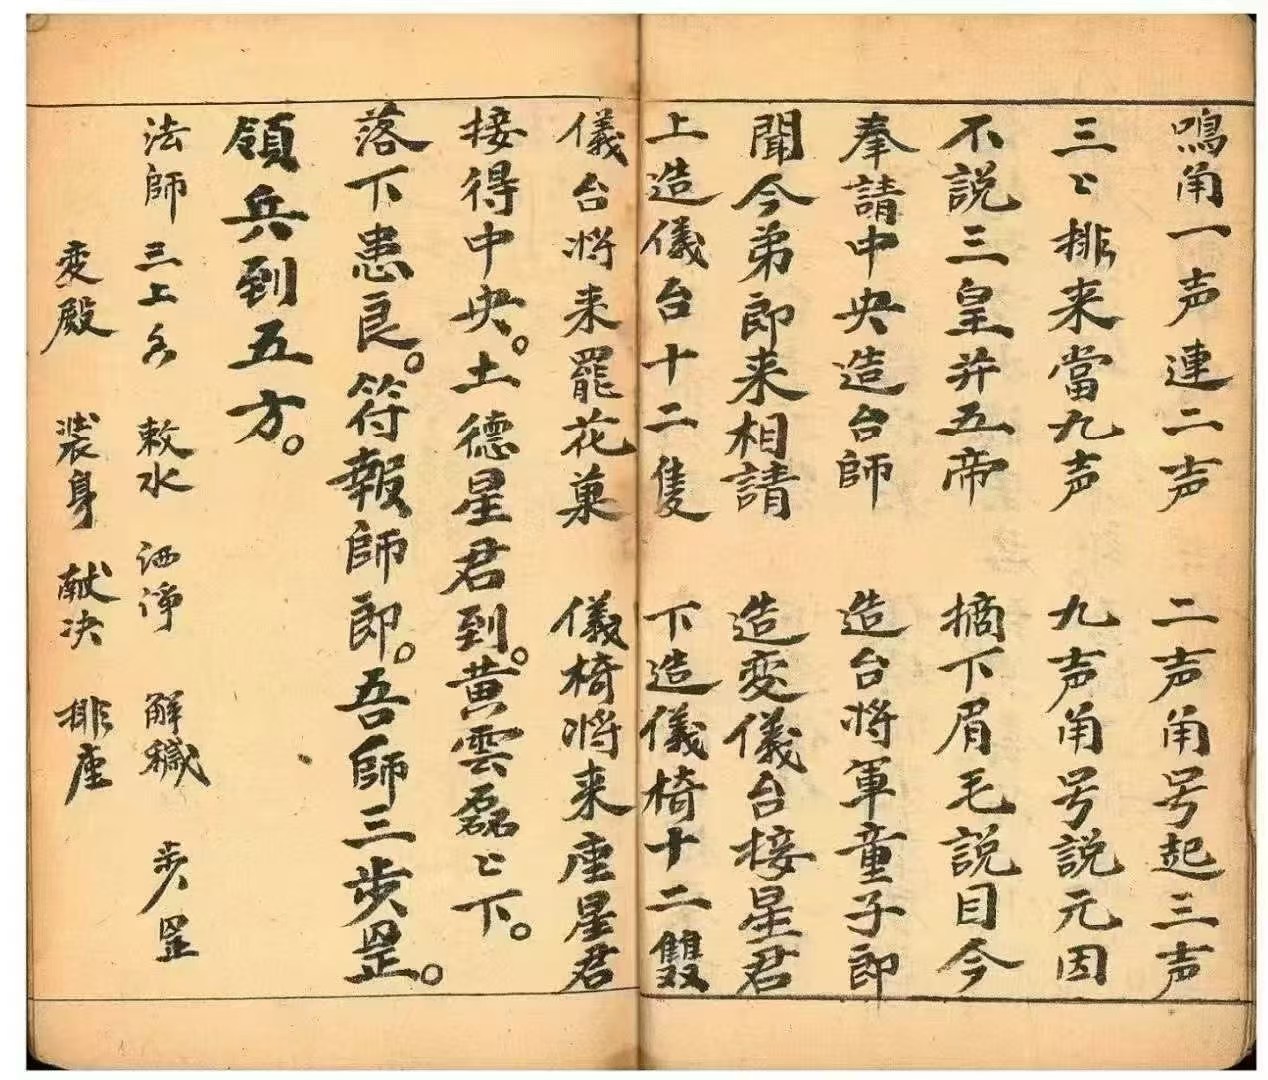 鳴角一声連二声 二声角号起三声
三〻排来當九声 九声角号説元因
不説三皇并五帝 摘下眉毛説目今
奉請中央造台師 造台將軍童子郎
聞今弟郎来相請 造变儀台接星君
上造儀台十二隻 下造儀椅十二雙
儀台將来罷花菓 儀椅將来座星君
接得中央。土德星君到。黄雲磊〻下。
落下患良。符報師郎。吾師三步罡。
領兵到五方。
法師三上 敕水 洒淨 解穢 步罡
变殿 裝身 献决 排座